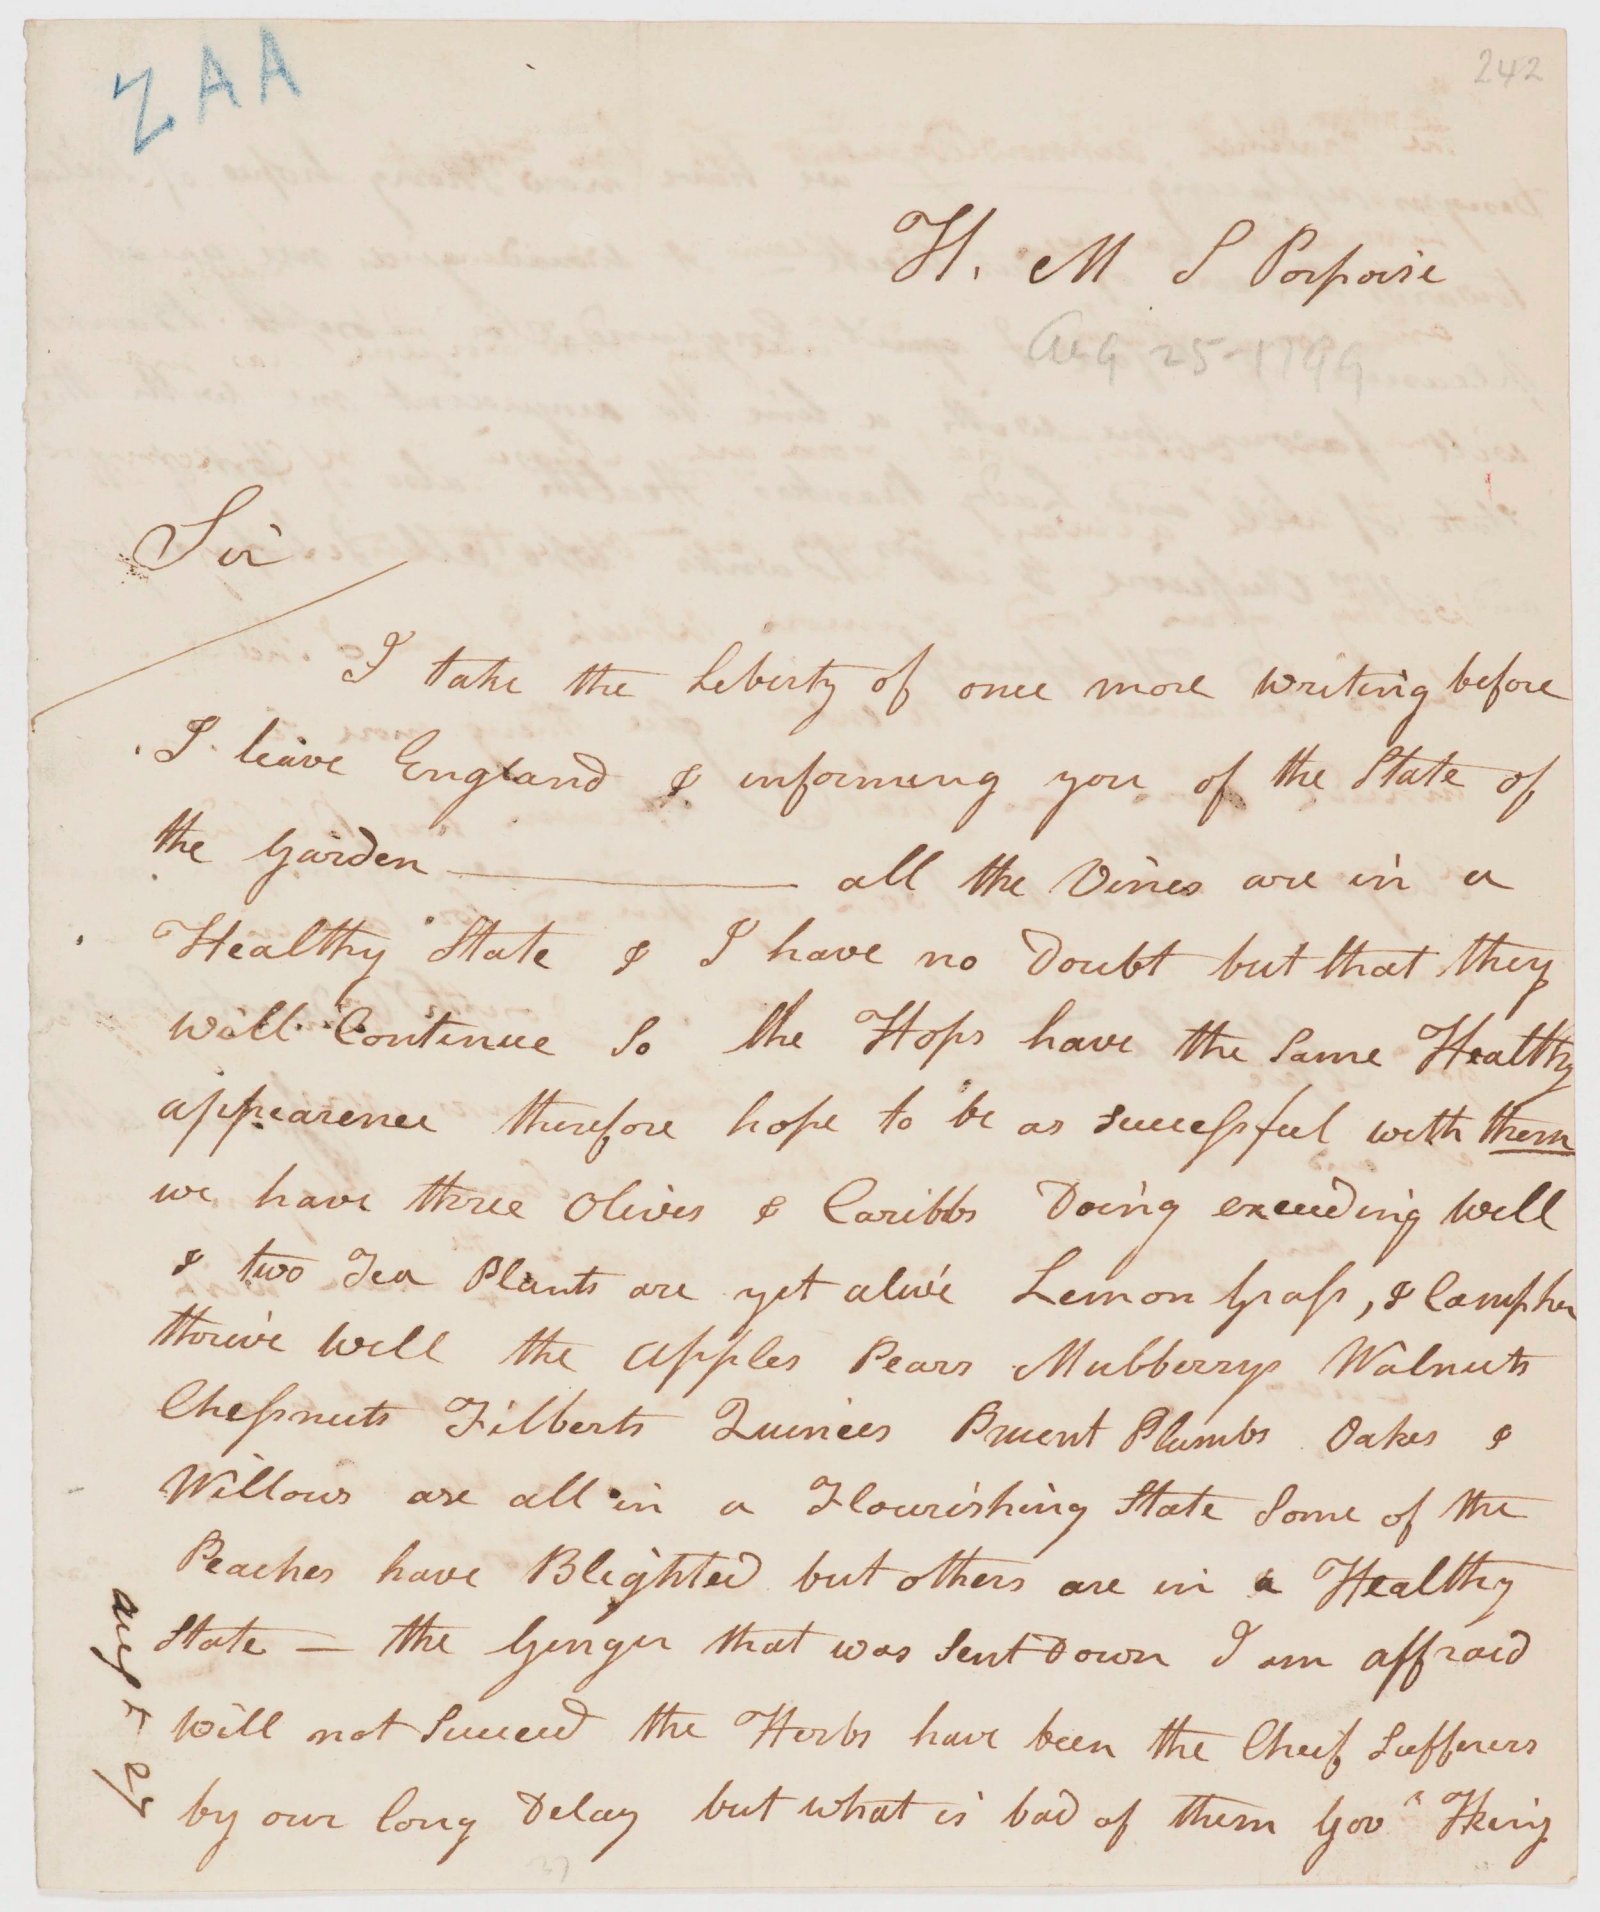 ZAA
242
H. M S Porpoise
Aug 25 - 1799
Sir
I take the Liberty of once more writing before
I leave England & informing you of the State of
the Garden — all the Vines are in a
Healthy State & I have no Doubt but that they
will Continue So the Hops have the Same Healthy
appearence therefore hope to be as successful with them
we have three Olives & Caribbs Doing exceeding well
& two Tea Plants are yet alive Lemon Grass, & Campher
thrive well the apples Pears Mulberrys Walnuts
Chessnuts Filberts Quinces Pruent Plumbs Oakes &
Willows are all in a Flourishing State Some of the
Peaches have Blighted but others are in a Healthy
State — the Ginger that was Sent Down I am affraid
will not Succeed the Herbs have been the Cheif Sufferers
by our long Delay but what is bad of them Govr King
37